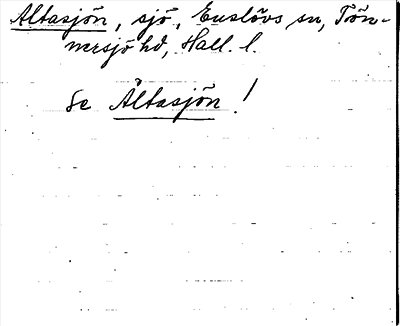 Altasjön, sjö, Enslövs sn, Tönn-
nersjö hd, Hall. l.
Se Ältasjön!